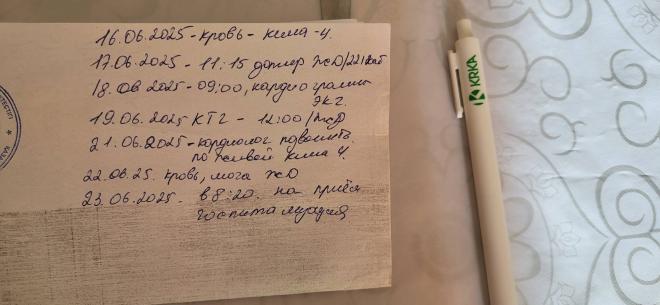 16.06.2025 - кровь - кима - 4.
17.06.2025 - 11:15 доплер ЖД/221каб
18.06 2025 - 09:00, кардиограмма
ЭКГ.
19.06.2025 КТГ - 12:00/ЖД
21.06.2025 - кардиолог позвонить
по живой кима 4.
22.06.25. кровь, моча ЖД
23.06.2025. в 8:20. на приём
госпитализация
KRKA